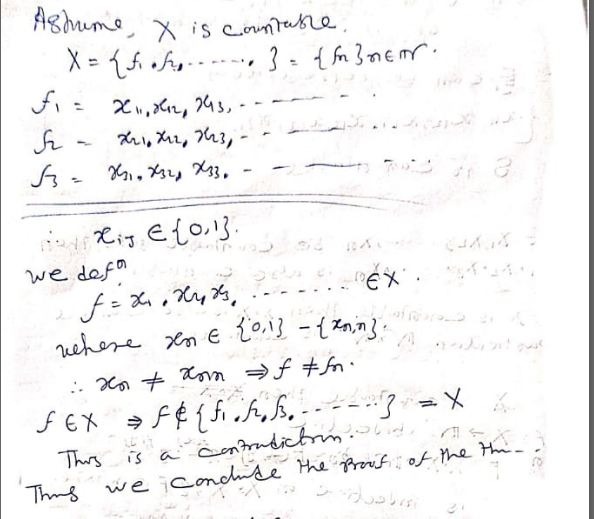 Ashume, X is countable.
X = {f₁, f₂, ------- } = {fn}n∈ℕ.
f₁ = x₁₁, x₁₂, x₁₃, - - - - -
f₂ = x₂₁, x₂₂, x₂₃, - - - - -
f₃ = x₃₁, x₃₂, x₃₃, - - - - -
∴ xᵢⱼ ∈ {0,1}.
we defⁿ
f = x₁, x₂, x₃, - - - - - - - ∈ X.
where xn ∈ {0,1} - {xn,n}.
∴ xn ≠ xnn ⇒ f ≠ fn.
f ∈ X ⇒ f ∉ {f₁, f₂, f₃, - - - - - } = X
This is a contradiction.
Thus we conclude the proof of the Th--.